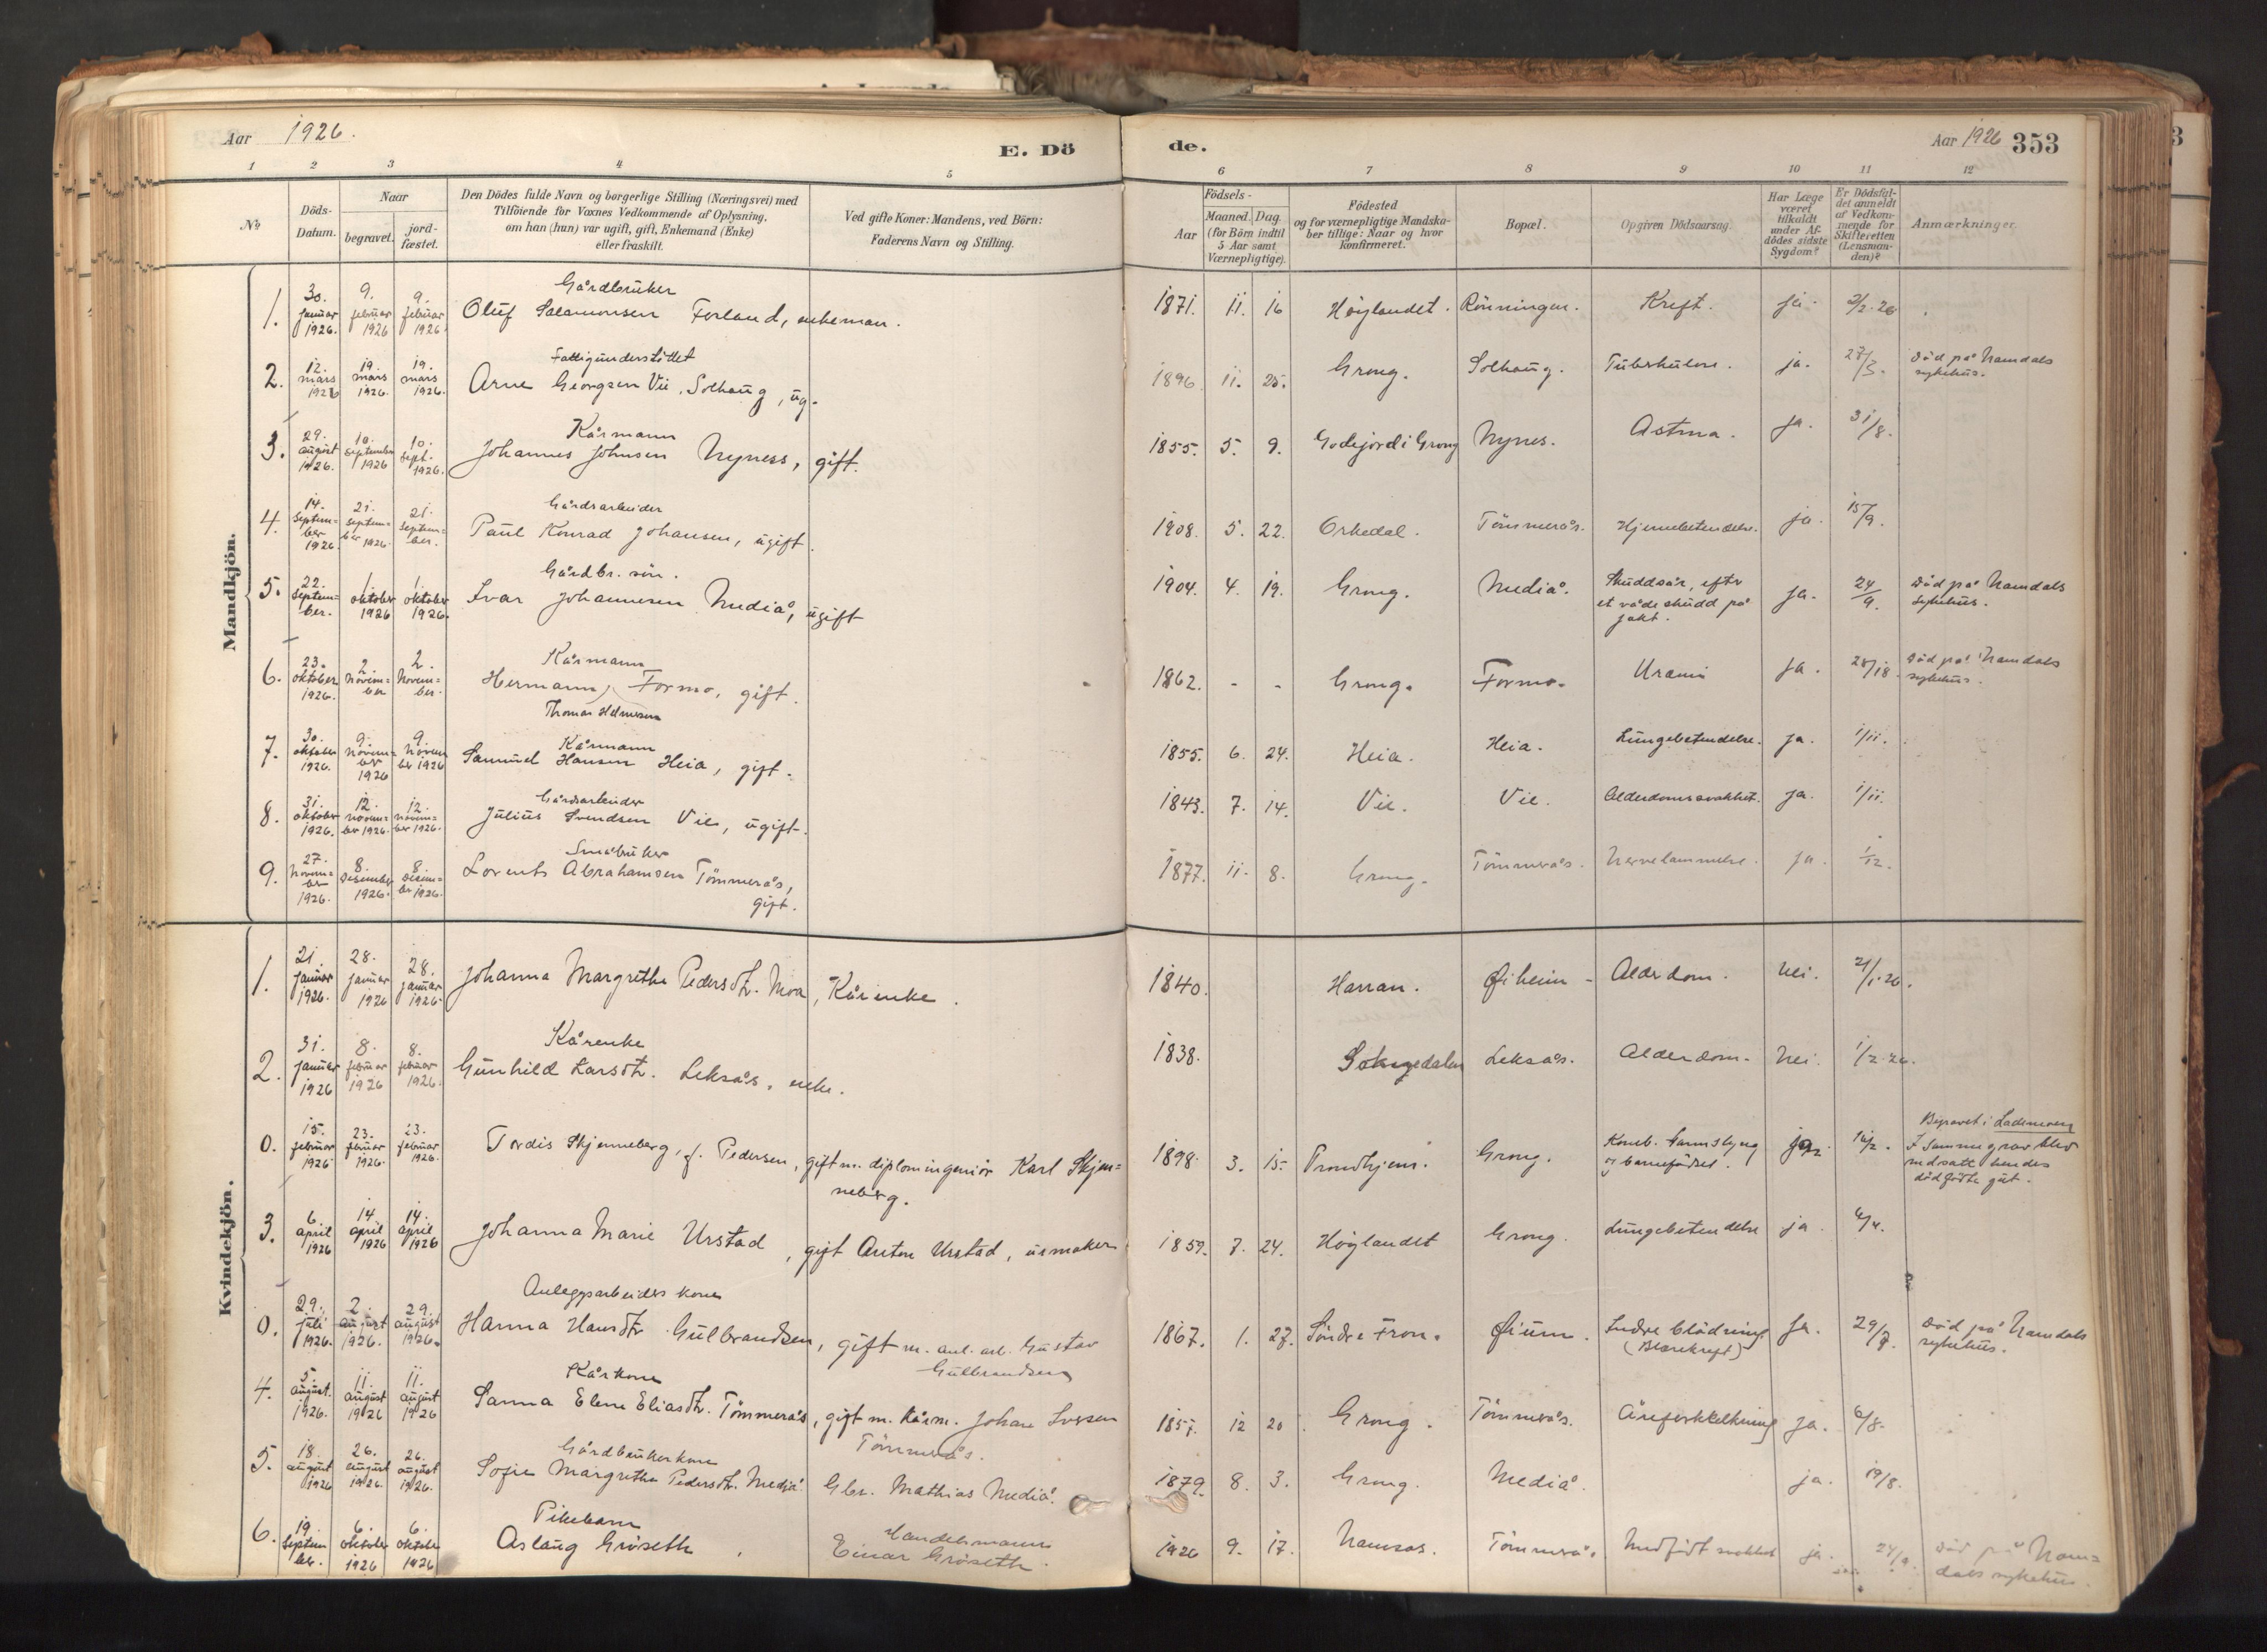 Aar 1926.
E. Dö
de.
Aar 1926 353
1 2 3 4 5 6 7 8 9 10 11 12
No
Döds-Datum.
Naar
begravet.
jord-fæstet.
Den Dödes fulde Navn og borgerlige Stilling (Næringsvei) med
Tilföiende for Voxnes Vedkommende af Oplysning,
om han (hun) var ugift, gift, Enkemand (Enke)
eller fraskilt.
Ved gifte Koner: Mandens, ved Börn:
Faderens Navn og Stilling.
Födsels-
Aar
Maaned. Dag.
(for Börn indtil
5 Aar samt
Værnepligtige).
Födested
og for værnepligtige Mandska-
ber tillige: Naar og hvor
Konfirmeret.
Bopæl.
Opgiven Dödsaarsag.
Har Læge
været
tilkaldt
under Af-
dödes sidste
Sygdom?
Er Dödsfal-
det anmeldt
af Vedkom-
mende for
Skifteretten
(Lensman-
den)?
Anmærkninger.
Mandkjön.
1. 30. januar 1926. 9. februar 1926 9. februar 1926. Gårdbruker
Oluf Salamonsen Forland, enkeman. 1871. 11. 16 Høylandet. Rönningen. Kreft. ja. 2/2-26
2. 12. mars 1926 19. mars 1926. 19. mars 1926. Fattigunderstöttet
Arne Georgsen Vie, Solhaug, ug. 1896. 11. 25. Grong. Solhaug. Tuberkulose. ja. 27/3. Död på Namdals
sykehus.
3. 29. august 1926. 10. september 1926 10. sept. 1926. Kårmann
Johannes Johnsen Nyness, gift. 1855. 5. 9. Godejord i Grong Nynes. Astma. ja. 31/8.
4. 14. september 1926. 21. september 1926. 21. september. Gårdsarbeider
Paul Konrad Johansen, ugift. 1908. 5. 22. Orkedal. Tömmerås. Hjernebetendelse. ja. 15/9.
5. 22. september. 1. oktober 1926 1. oktober 1926. Gårdbr. sön.
Ivar Johannesen Mediå, ugift 1904. 4. 19. Grong. Mediå. Skuddsår, efter
et vådeskudd på
jakt. ja. 24/9. Död på Namdals
sykehus.
6. 23. oktober 1926. 2. november 2. november. Kårmann
Hermann Formo, gift.
Thomas Helmersen 1862. - - Grong. Formo. Urami ja. Död på Namdals
sykehus.
7. 30. oktober 1926. 9. november 1926 9. november 1926 Kårmann
Samuel Hansen Heia, gift. 1855. 6. 24. Heia. Heia. Lungebetendelse. ja. 1/11.
8. 31. oktober 1926. 12. november 1926. 12. november 1926. Gårdsarbeider
Julius Svendsen Vie, ugift. 1843. 7. 14. Vie. Vie. Alderdomssvakhet. ja. 1/11.
9. 27. november 1926. 8. desember 1926. 8. desember 1926. Småbruker
Lorents Abrahamsen Tömmerås,
gift. 1877. 11. 8. Grong. Tömmerås. Nervelammelse. ja. 1/12.
Kvindekjön.
1. 21. januar 1926. 28. januar 1926 28. januar 1926. Johanna Margrethe Pedersdtr. Moa, Kårenke. 1840. Harran. Øiheim Alderdom. nei. 21/1-26.
2. 31. januar 1926 8. februar 1926 8. februar 1926. Kårenke
Gunhild Larsdtr. Leksås, enke. 1838. Soknedalen Leksås. Alderdom. nei. 1/2-26.
0. 15. februar 1926 23. februar 1926. 23. februar 1926. Tordis Skjenneberg, f. Pedersen, gift m. diplomingeniör Karl Skjen=
neberg. 1898. 3. 15. Trondhjem. Grong. Komb.
og barnefödsel. ja. 16/2. Begravet i Lademoen
I samme grav blev
nedsatt hendes
dödfödte gut.
3. 6. april 1926 14. april 1926 14. april 1926 Johanna Marie Urstad, gift Anton Urstad, urmaker 1859. 7. 24. Høylandet Grong. Lungebetendelse ja. 6/4.
0. 29. juli 1926. 2. august 1926. 29. august 1926. Anleggsarbeiders kone
Hanna Hansdtr. Gulbrandsen, gift m. anl. arb. Gustav
Gulbrandsen 1867. 1. 27. Söndre Fron. Øium. Indre blödning
(Blærekreft) ja. 29/7. Död på Namdals
sykehus.
4. 5. august. 1926. 11. august 1926 11. august 1926 Kårkone
Sanna Elene Eliasdtr. Tömmerås, gift m. kårm. Johan Iversen
Tömmerås. 1857. 12 20 Grong. Tömmerås. Åreforkalkning ja. 6/8.
5. 18. august 1926 26. august 1926. 26. august 1926. Gårdbrukerkone
Sofie Margrethe Pedersdtr. Mediå. Gbr. Mathias Mediå. 1879. 8. 3. Grong. Mediå. ja. 19/8.
6. 19. september. 6. oktober 1926 6. oktober 1926 Pikebarn
Aslaug Gröseth. Handelsmann
Einar Gröseth. 1926 9. 17. Namsos. Tömmerås. Medfödt svakhet ja. 24/9. Död på Nam=
dals sykehus.